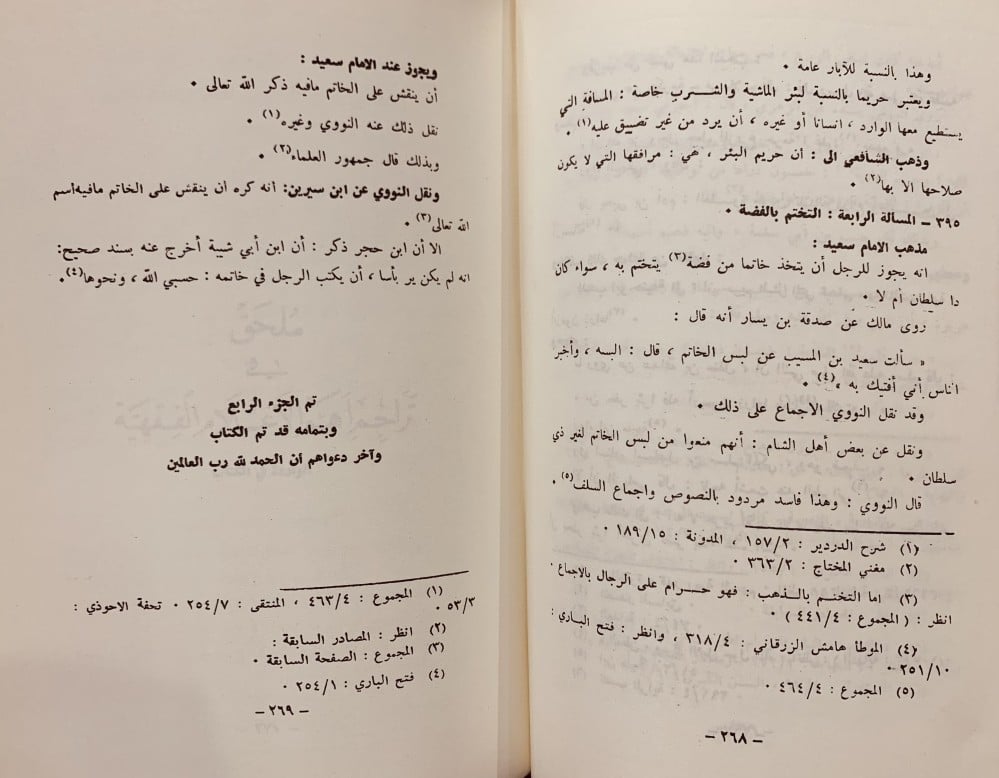 وهذا بالنسبة للآبار عامة .
ويعتبر حريما بالنسبة لبئر الماشية والشرب خاصة : المسافة التي
يستطيع معها الوارد ، انسانا أو غيره ، أن يرد من غير تضييق عليه(١) .
وذهب الشافعي الى : أن حريم البئر ، هي : مرافقها التي لا يكون
صلاحها الا بها(٢) .
٣٩٥ – المسالة الرابعة : التختم بالفضة .
مذهب الامام سعيد :
انه يجوز للرجل أن يتخذ خاتما من فضة(٣) يتختم به ، سواء كان
ذا سلطان أم لا .
روى مالك عن صدقة بن يسار أنه قال :
« سألت سعيد بن المسيب عن لبس الخاتم ، قال : البسه ، وأخبر
الناس أني أفتيك به »(٤) .
وقد نقل النووي الاجماع على ذلك .
ونقل عن بعض أهل الشام : أنهم منعوا من لبس الخاتم لغير ذي
سلطان .
قال النووي : وهذا فاسد مردود بالنصوص واجماع السلف(٥) .
(١) شرح الدردير : ١٥٧/٢ ، المدونة : ١٨٩/١٥ .
(٢) مغني المحتاج : ٣٦٣/٢ .
(٣) اما التختم بالذهب : فهو حرام على الرجال بالاجماع .
انظر : ( المجموع : ٤٤١/٤ ) .
(٤) الموطأ هامش الزرقاني : ٣١٨/٤ ، وانظر : فتح الباري :
٢٥١/١٠ .
(٥) المجموع : ٤٦٤/٤ .
– ٢٦٨ –
ويجوز عند الامام سعيد :
أن ينقش على الخاتم مافيه ذكر الله تعالى .
نقل ذلك عنه النووي وغيره(١) .
وبذلك قال جمهور العلماء(٢) .
ونقل النووي عن ابن سيرين: أنه كره ان ينقش على الخاتم مافيه اسم
الله تعالى(٣) .
الا أن ابن حجر ذكر : أن ابن أبي شيبة أخرج عنه بسند صحيح:
انه لم يكن ير بأسا ، أن يكتب الرجل في خاتمه : حسبي الله ، ونحوها(٤).
تم الجزء الرابع
وبتمامه قد تم الكتاب
وآخر دعواهم أن الحمد لله رب العالمين
(١) المجموع : ٤٦٣/٤ ، المنتقى : ٢٥٤/٧ . تحفة الاحوذي :
٥٣/٣ .
(٢) انظر : المصادر السابقة :
(٣) المجموع : الصفحة السابقة .
(٤) فتح الباري : ٢٥٤/١ .
– ٢٦٩ –